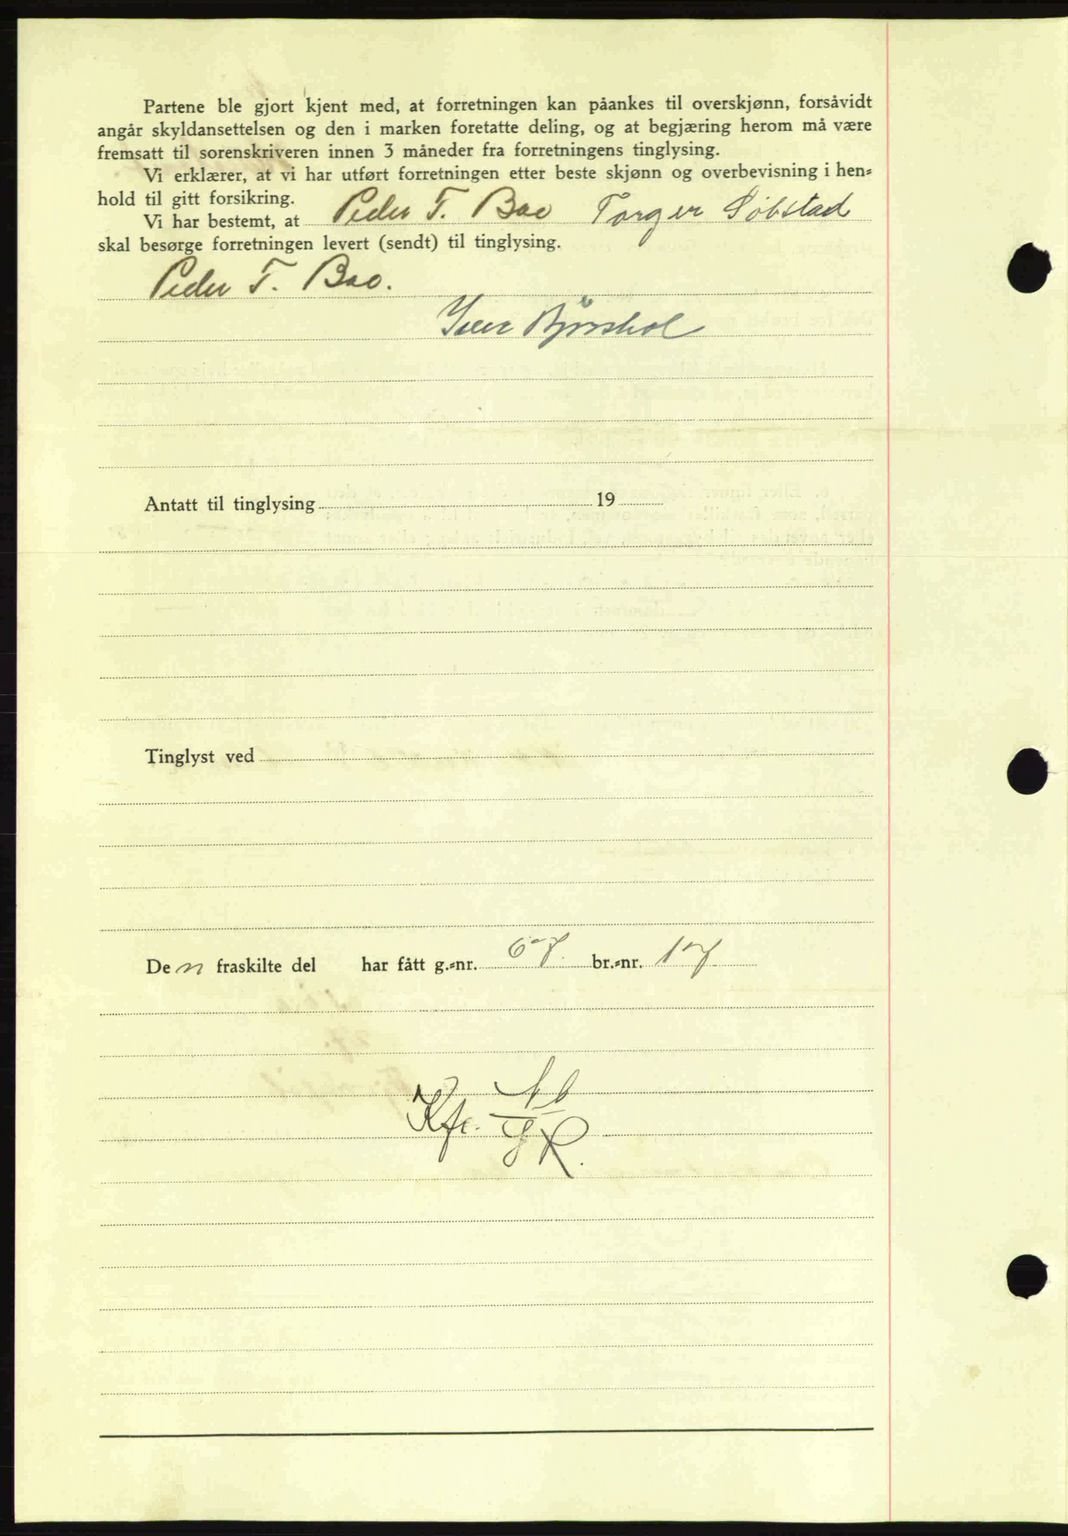 Partene ble gjort kjent med, at forretningen kan påankes til overskjønn, forsåvidt
angår skyldansettelsen og den i marken foretatte deling, og at begjæring herom må være
fremsatt til sorenskriveren innen 3 måneder fra forretningens tinglysing.
Vi erklærer, at vi har utført forretningen etter beste skjønn og overbevisning i hen-
hold til gitt forsikring.
Vi har bestemt, at Peder T. Boe Torger Söbstad
skal besørge forretningen levert (sendt) til tinglysing.
Peder T. Boe.
Iver Björshol
Antatt til tinglysing 19
Tinglyst ved
De n fraskilte del har fått g.-nr. 67. br.-nr. 17
Kfr.